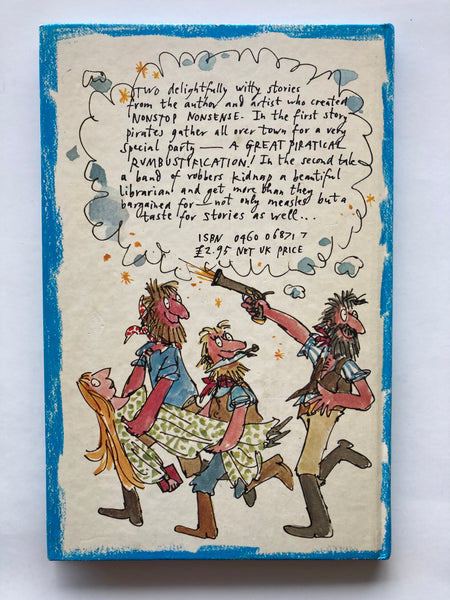 TWO delightfully witty stories
from the author and artist who created
NONSTOP NONSENSE. In the first story
pirates gather all over town for a very
special party — A GREAT PIRATICAL
RUMBUSTIFICATION! In the second tale
a band of robbers kidnap a beautiful
librarian and get more than they
bargained for — not only measles but a
taste for stories as well...
ISBN 0460 06871 7
£2.95 NET UK PRICE